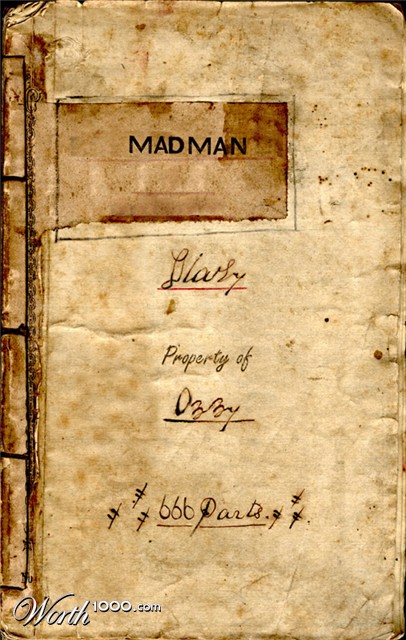 MADMAN
Diary
Property of
Ozzy
666 Parts.
Worth1000.com